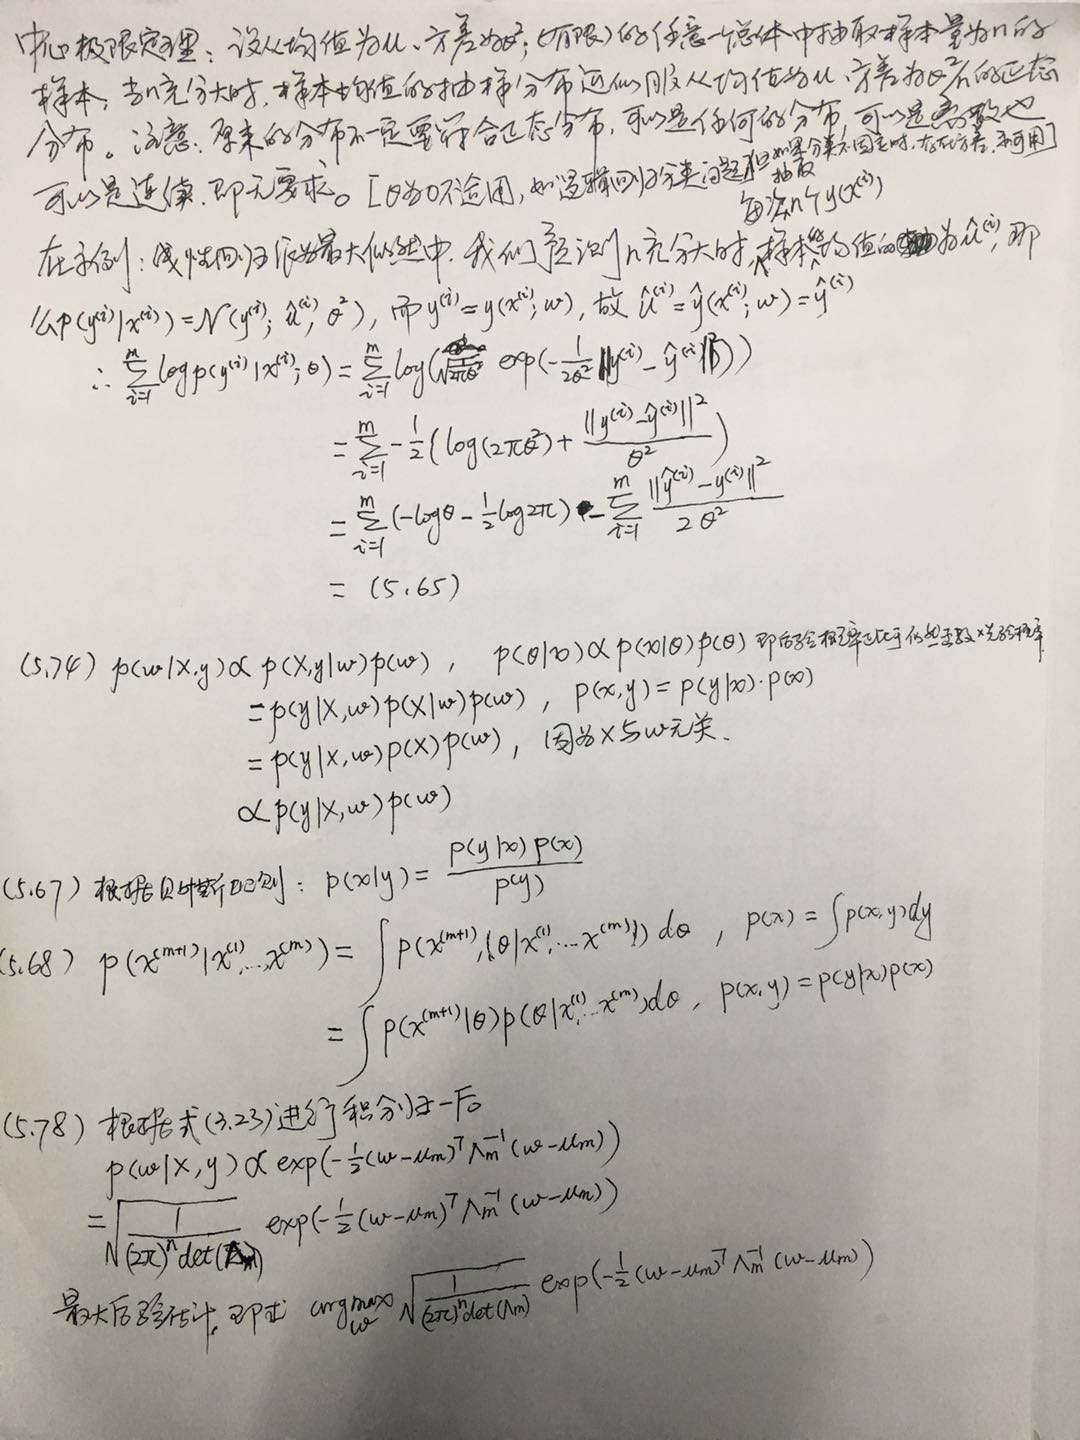 中心极限定理：设从均值为μ、方差为σ²；(有限)的任意一总体中抽取样本量为n的
样本，当n充分大时，样本均值的抽样分布近似服从均值为μ、方差为σ²/n的正态
分布。注意：原来的分布不一定要符合正态分布，可以是任何的分布，可以是离散也
可以是连续，即无要求。[σ为0不适用，如逻辑回归分类问题，但如果分类不固定时，存在方差，亦可用]
抽取
每次n个y(x⁽ⁱ⁾)
在示例：线性回归作为最大似然中，我们预识n充分大时，样本均值的为û⁽ⁱ⁾，那
么p(y⁽ⁱ⁾|x⁽ⁱ⁾)=N(y⁽ⁱ⁾; û⁽ⁱ⁾, σ²)，而y⁽ⁱ⁾=y(x⁽ⁱ⁾; w)，故 û⁽ⁱ⁾=ŷ(x⁽ⁱ⁾; w)=ŷ⁽ⁱ⁾
∴ Σᵢ₌₁ᵐ log p(y⁽ⁱ⁾|x⁽ⁱ⁾; θ) = Σᵢ₌₁ᵐ log(√(1/2πσ²) exp(-1/2σ² ||y⁽ⁱ⁾-ŷ⁽ⁱ⁾||²))
= Σᵢ₌₁ᵐ -1/2 (log(2πσ²) + ||y⁽ⁱ⁾-ŷ⁽ⁱ⁾||²/σ²)
= Σᵢ₌₁ᵐ (-logσ - 1/2 log2π) - Σᵢ₌₁ᵐ ||ŷ⁽ⁱ⁾-y⁽ⁱ⁾||²/2σ²
= (5.65)
(5.74) p(w|X,y) ∝ p(X,y|w)p(w), p(θ|x) ∝ p(x|θ)p(θ) 即后验概率正比于似然函数×先验概率
= p(y|X,w)p(X|w)p(w), p(x,y) = p(y|x)·p(x)
= p(y|X,w)p(X)p(w), 因为X与w无关.
∝ p(y|X,w)p(w)
(5.67) 根据贝叶斯规则：p(x|y) = p(y|x)p(x)/p(y)
(5.68) p(x⁽ᵐ⁺¹⁾|x⁽¹⁾,...,x⁽ᵐ⁾) = ∫p(x⁽ᵐ⁺¹⁾,(θ|x⁽¹⁾,...x⁽ᵐ⁾))dθ, p(x) = ∫p(x,y)dy
= ∫p(x⁽ᵐ⁺¹⁾|θ)p(θ|x⁽¹⁾,...x⁽ᵐ⁾)dθ, p(x,y) = p(y|x)p(x)
(5.78) 根据式(3.23)进行积分归一化
p(w|X,y) ∝ exp(-1/2(w-μₘ)ᵀΛₘ⁻¹(w-μₘ))
= √(1/(2π)ⁿdet(Λₘ)) exp(-1/2(w-μₘ)ᵀΛₘ⁻¹(w-μₘ))
最大后验估计，即求 argmax_w √(1/(2π)ⁿdet(Λₘ)) exp(-1/2(w-μₘ)ᵀΛₘ⁻¹(w-μₘ))